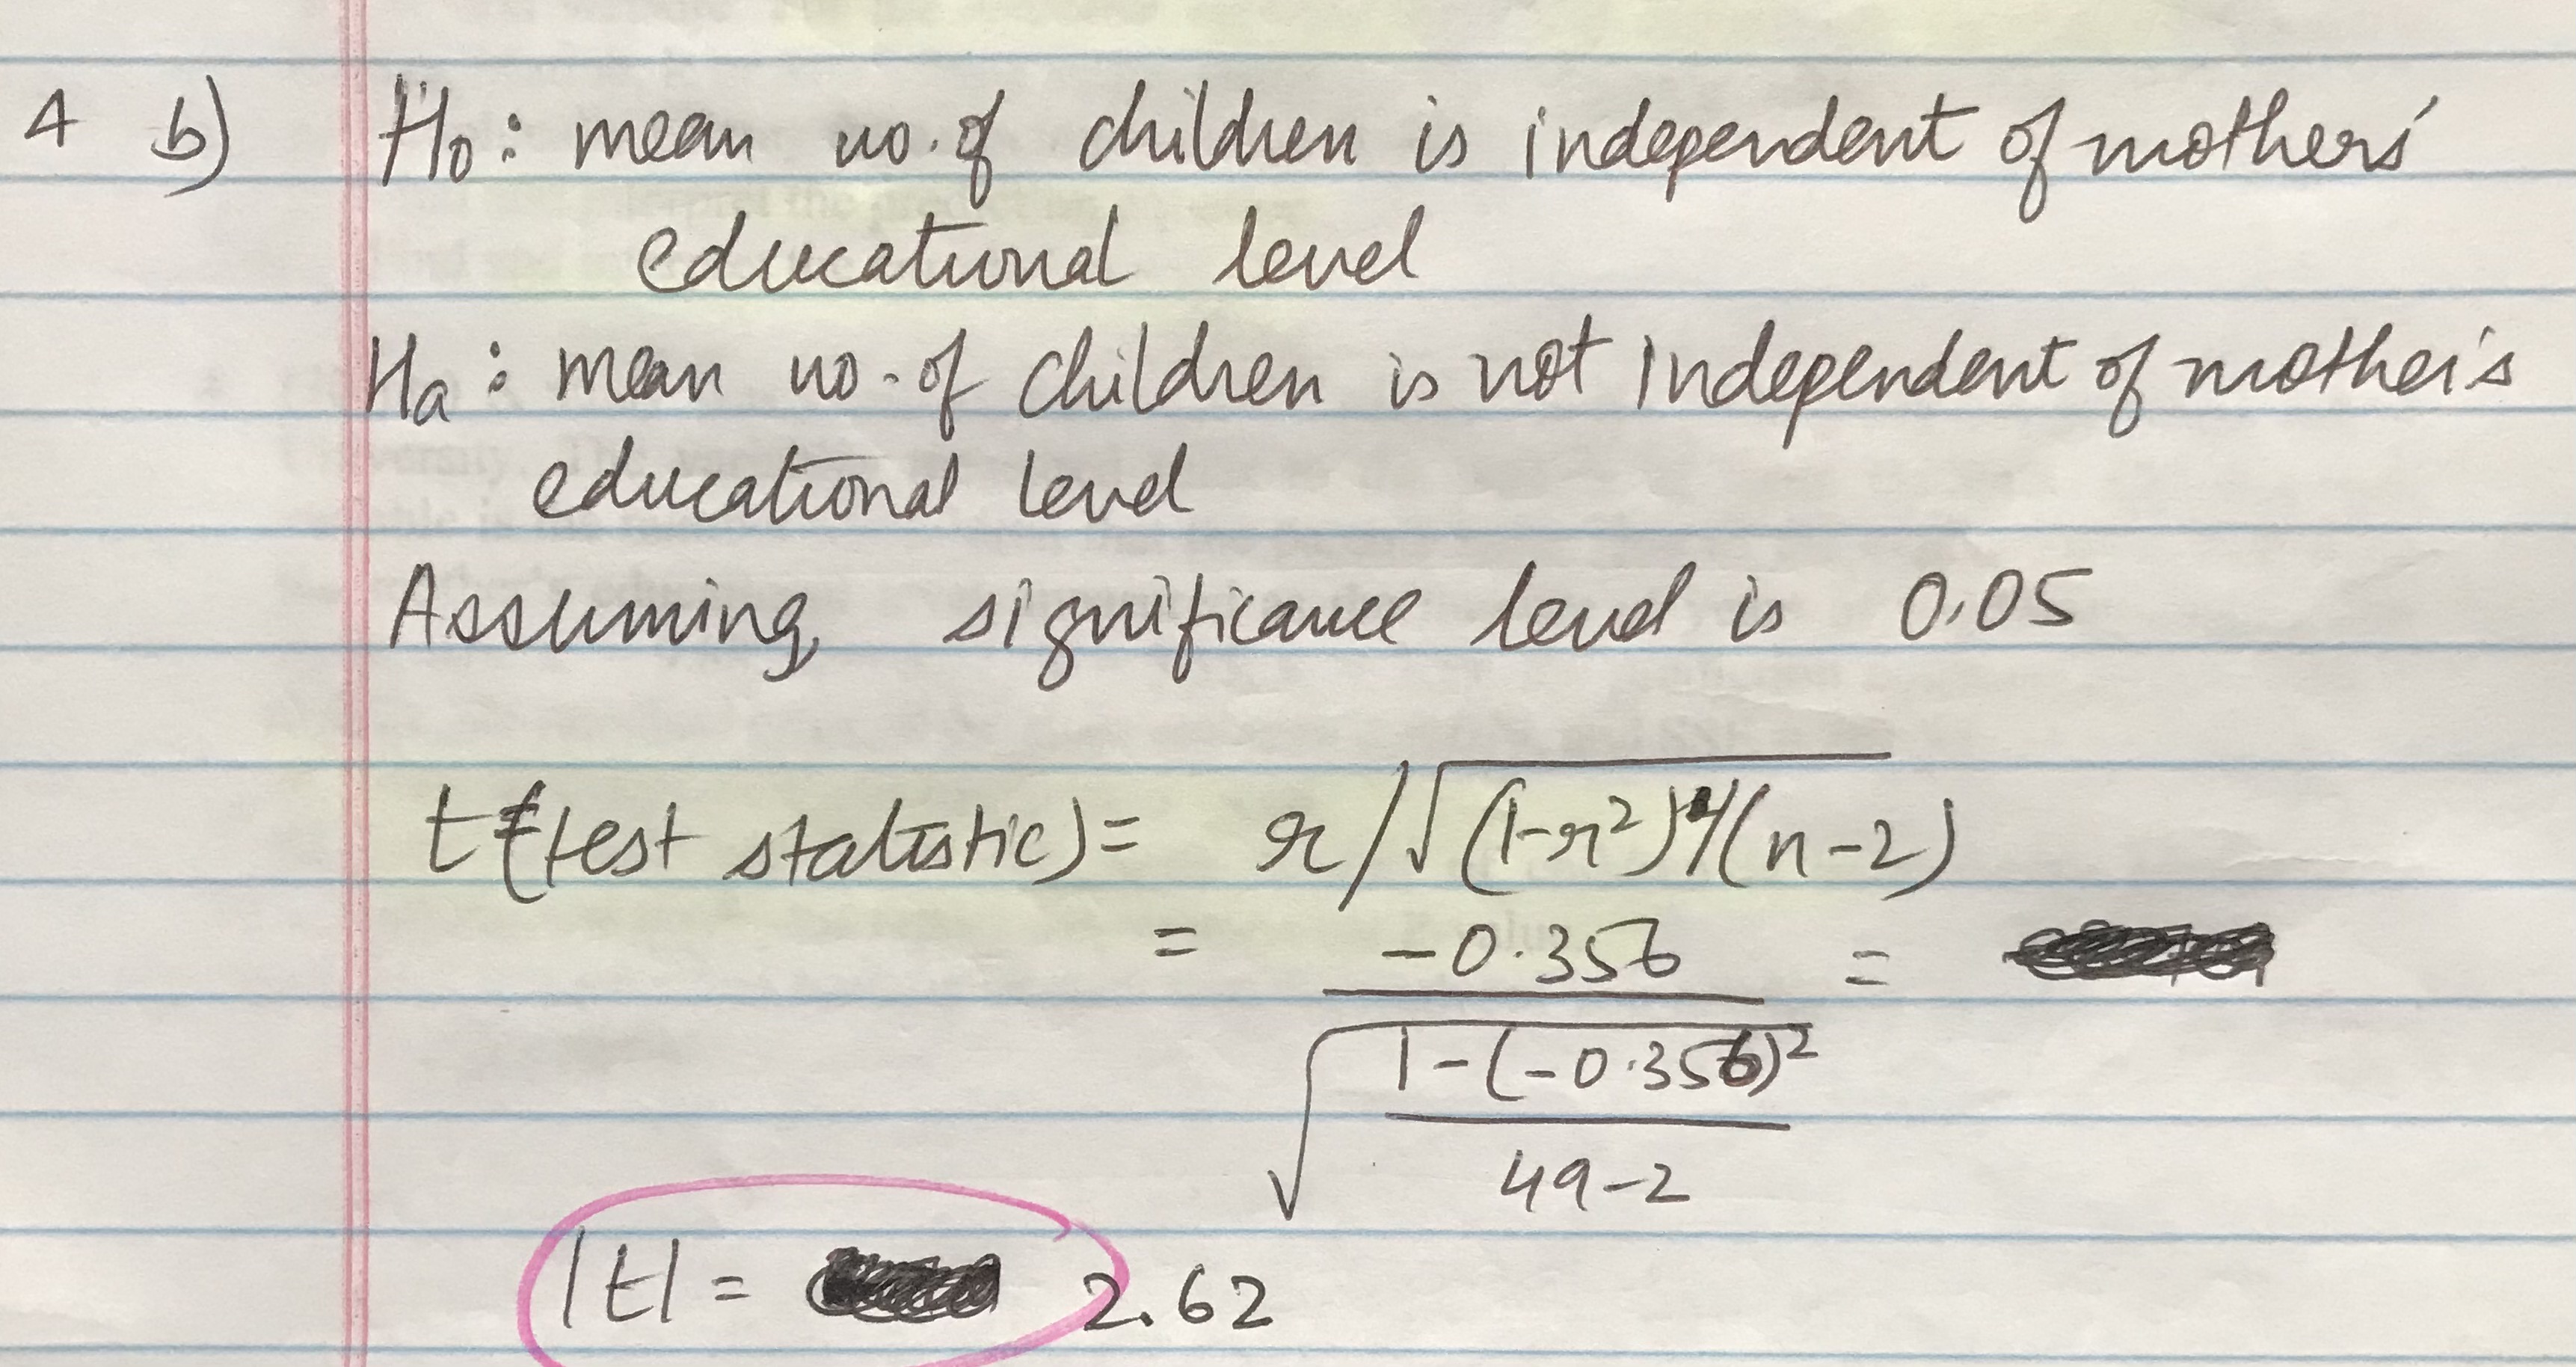 4 b) H0: mean no. of children is independent of mothers'
educational level
Ha: mean no. of children is not independent of mother's
educational level
Assuming, significance level is 0.05
t (test statistic) = r/√(1-r²)/(n-2)
= -0.356 =
√1-(-0.356)²
49-2
|t| = 2.62